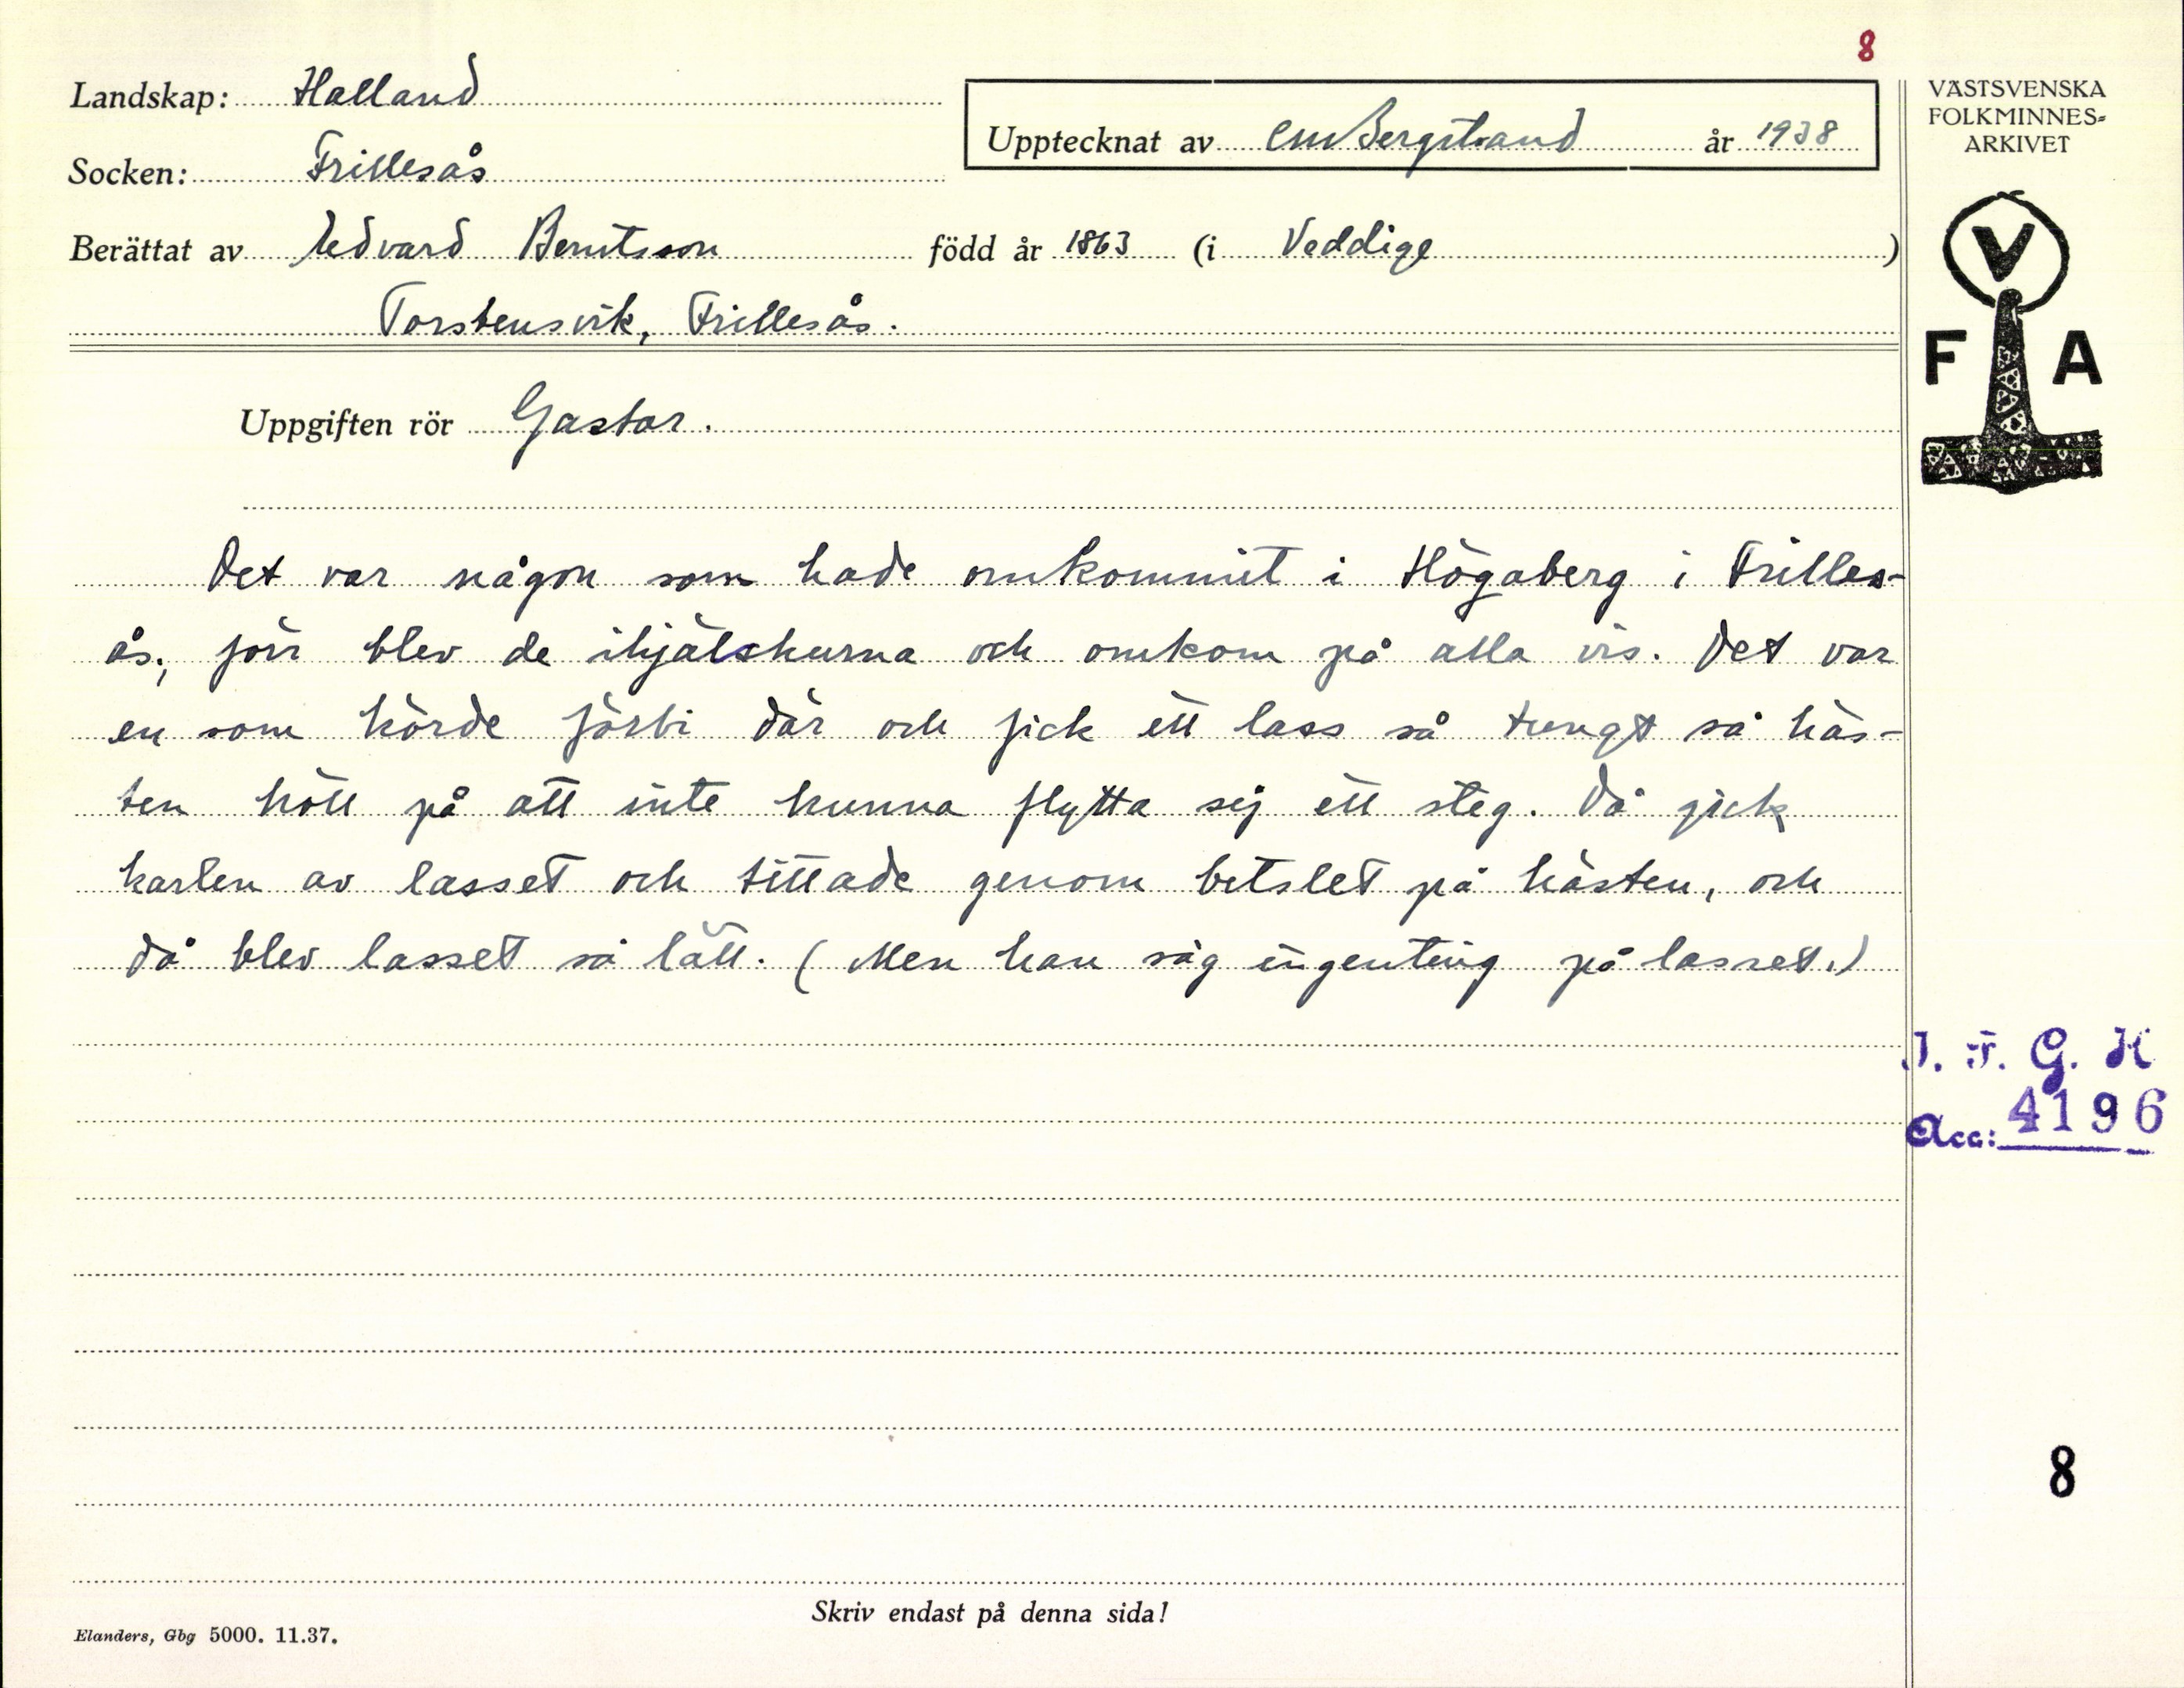 8
Landskap: Halland
Upptecknat av CMBergstrand år 1938
VÄSTSVENSKA
FOLKMINNES-
ARKIVET
Socken: Frillesås
Berättat av Edvard Berntsson född år 1863 (i Veddige )
Torstensvik, Frillesås.
V
F A
Uppgiften rör Gastar.
Det var någon som hade omkommit i Högaberg i Frilles-
ås, förr blev de ihjälskurna och omkom på alla vis. Det var
en som körde förbi där och fick ett lass så tungt så häs-
ten höll på att inte kunna flytta sej ett steg. Då gick
karlen av lasset och tittade genom betslet på hästen, och
då blev lasset så lätt. (Men han såg ingenting på lasset.)
I. F. G. H
Acc: 4196
8
Skriv endast på denna sida!
Elanders, Gbg 5000. 11.37.